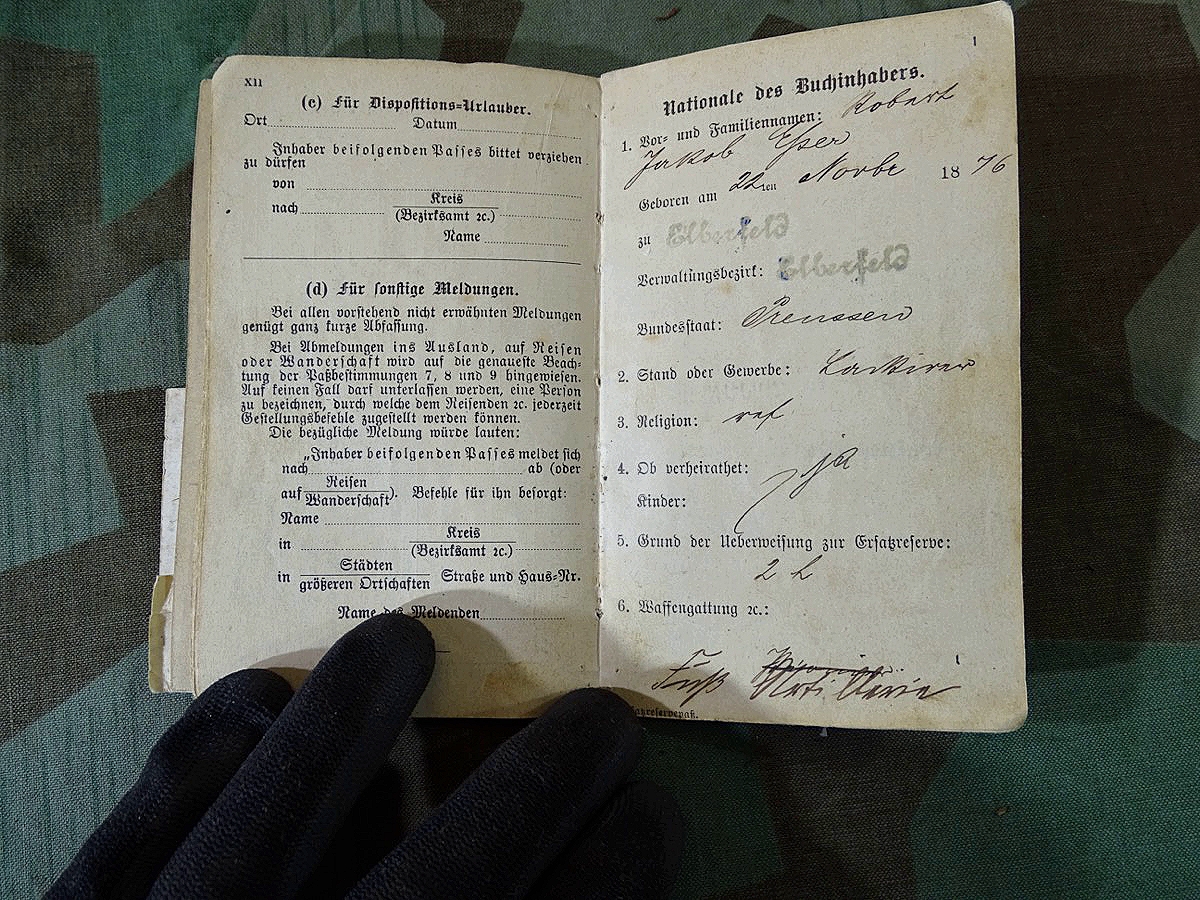 XII
(c) Für Dispositions-Urlauber.
Ort Datum
Inhaber beifolgenden Passes bittet verziehen
zu dürfen
von
nach Kreis
(Bezirksamt ꝛc.)
Name
(d) Für sonstige Meldungen.
Bei allen vorstehend nicht erwähnten Meldungen
genügt ganz kurze Abfassung.
Bei Abmeldungen ins Ausland, auf Reisen
oder Wanderschaft wird auf die genaueste Beach-
tung der Paßbestimmungen 7, 8 und 9 hingewiesen.
Auf keinen Fall darf unterlassen werden, eine Person
zu bezeichnen, durch welche dem Reisenden ꝛc. jederzeit
Gestellungsbefehle zugestellt werden können.
Die bezügliche Meldung würde lauten:
„Inhaber beifolgenden Passes meldet sich
nach ab (oder
auf Reisen
Wanderschaft). Befehle für ihn besorgt:
Name
in Kreis
(Bezirksamt ꝛc.)
in Städten
größeren Ortschaften Straße und Haus-Nr.
Name des Meldenden
1
Nationale des Buchinhabers.
1. Vor- und Familiennamen: Robert
Jakob Esser
Geboren am 22ten Novbr 1876
zu Elberfeld
Verwaltungsbezirk: Elberfeld
Bundesstaat: Preussen
2. Stand oder Gewerbe: Lackirer
3. Religion: ref.
4. Ob verheirathet: ja
Kinder:
5. Grund der Ueberweisung zur Ersatzreserve:
2 h
6. Waffengattung ꝛc.:
Fuß Artillerie